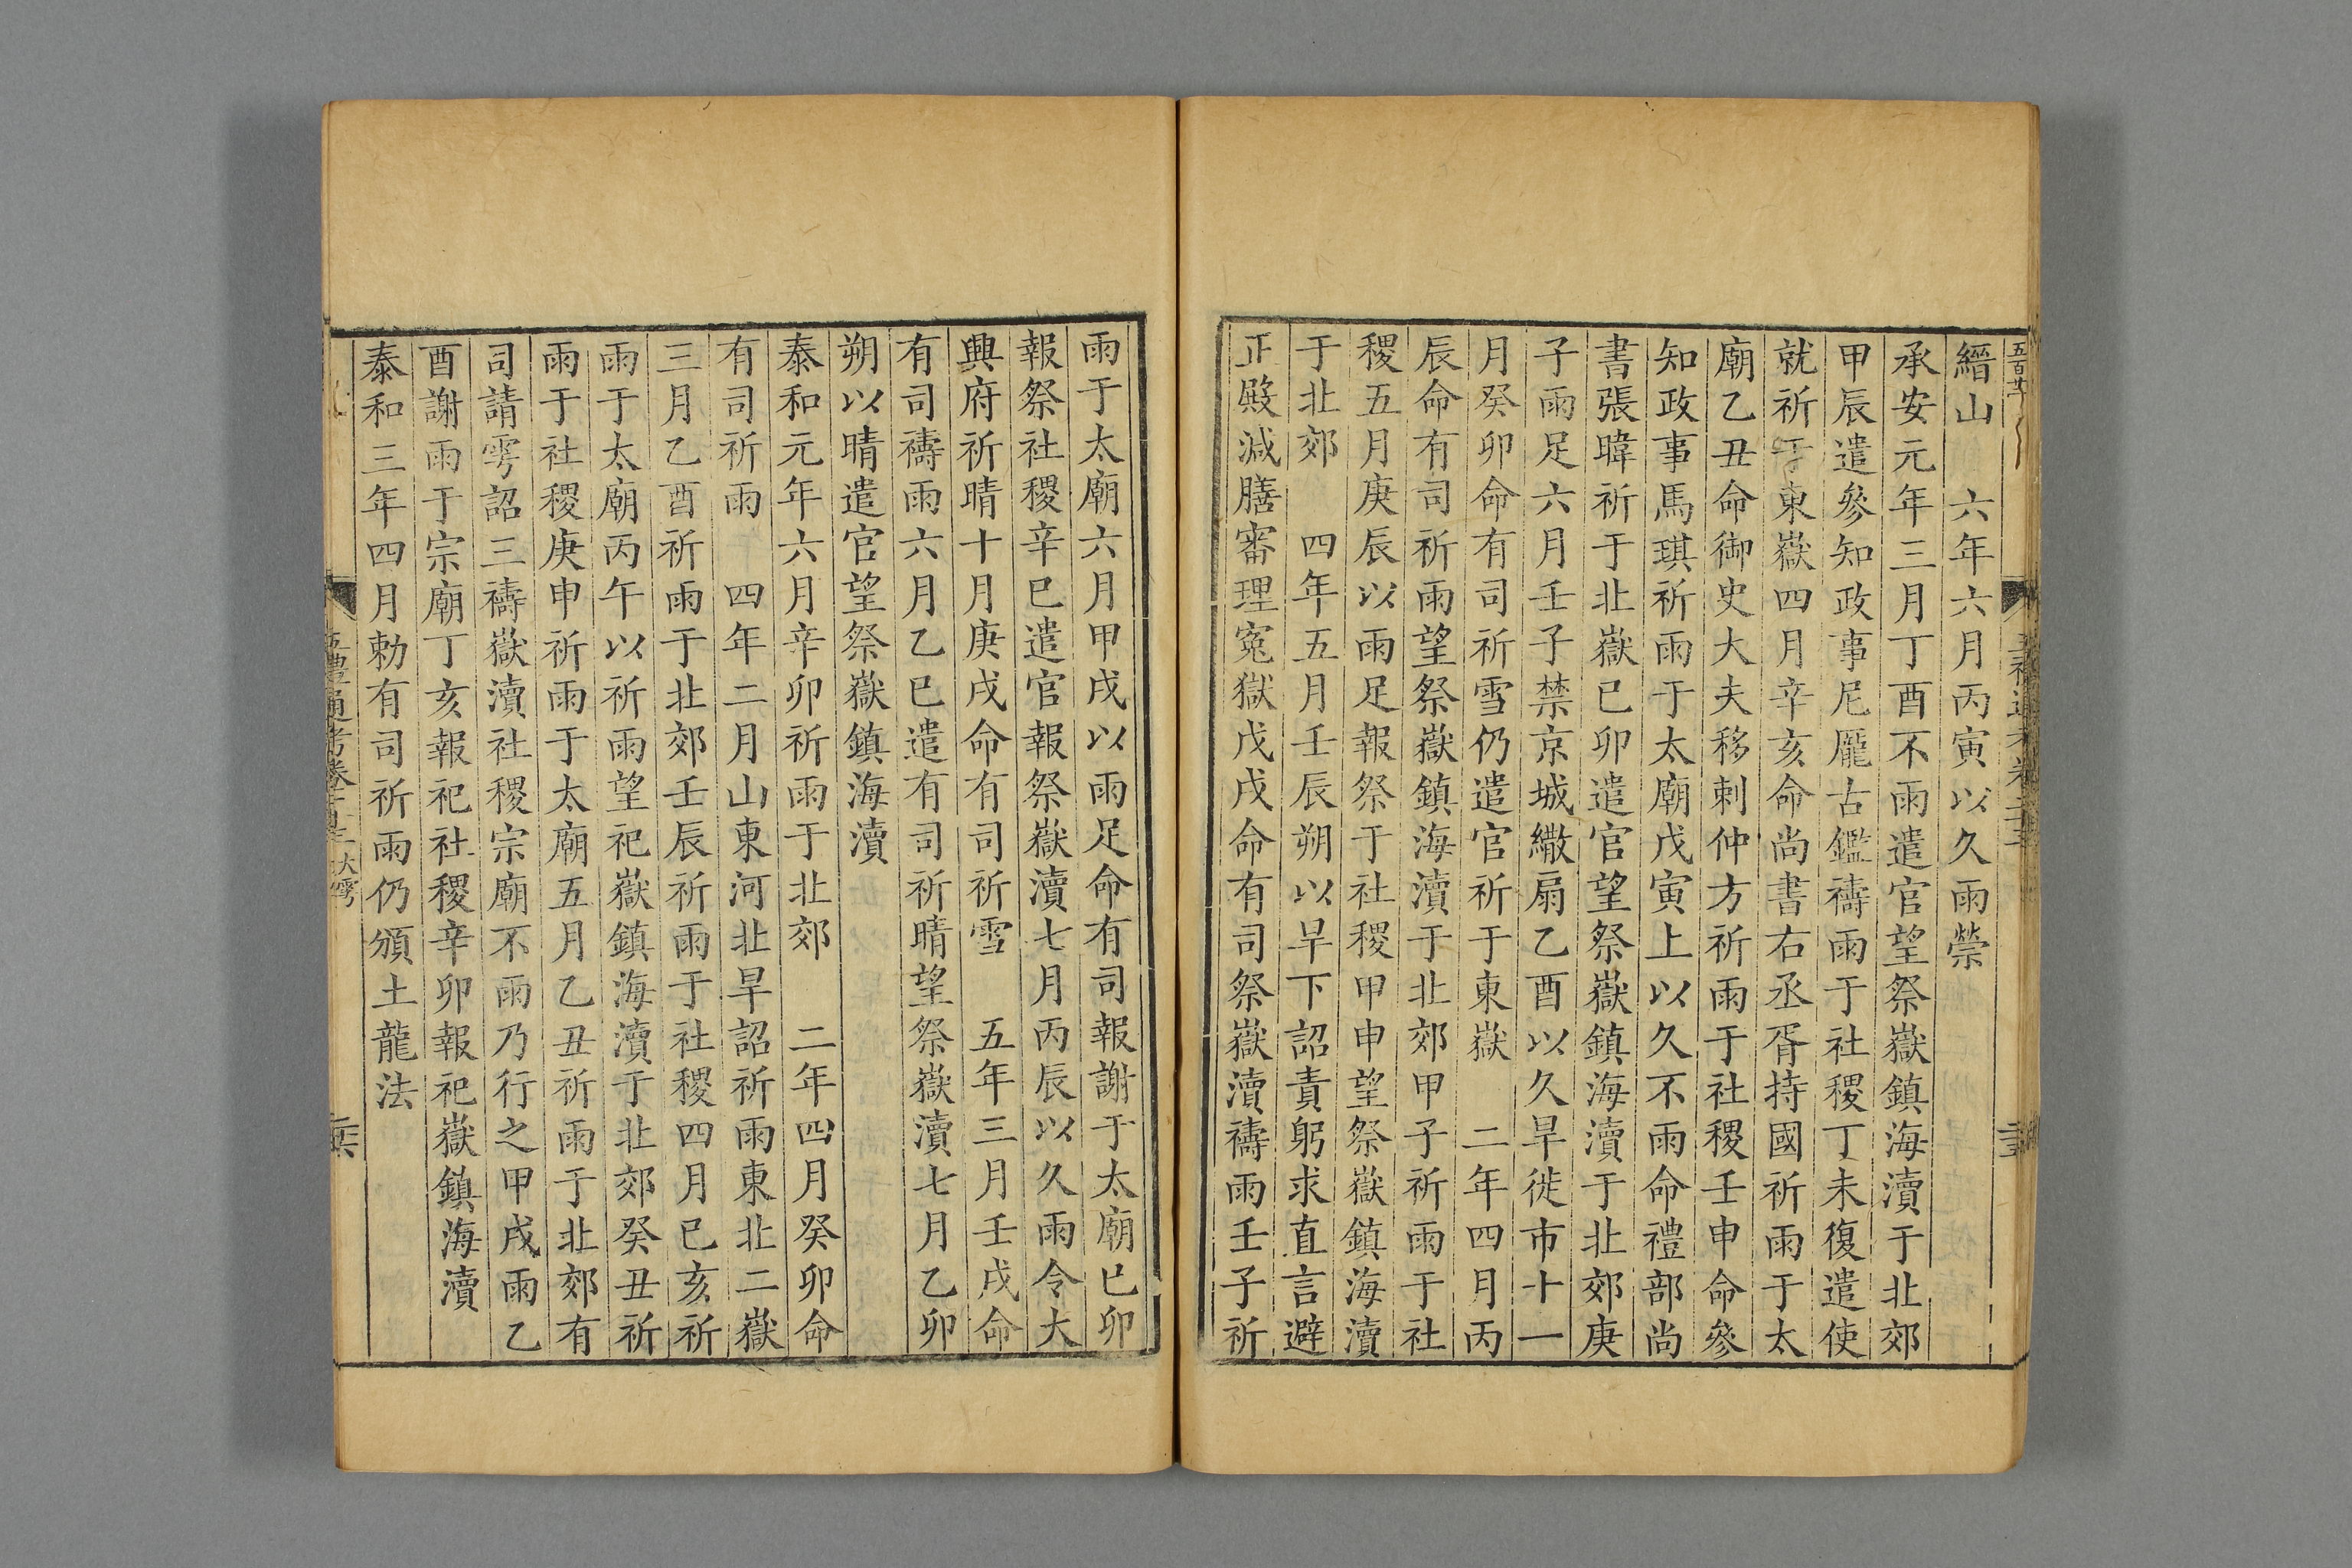 縉山　六年六月丙寅以久雨禜
承安元年三月丁酉不雨遣官望祭嶽鎮海瀆于北郊
甲辰遣參知政事尼龐古鑑禱雨于社稷丁未復遣使
就祈于東嶽四月辛亥命尚書右丞胥持國祈雨于太
廟乙丑命御史大夫移剌仲方祈雨于社稷壬申命參
知政事馬琪祈雨于太廟戊寅上以久不雨命禮部尚
書張暐祈于北嶽己卯遣官望祭嶽鎮海瀆于北郊庚
子雨足六月壬子禁京城繖扇乙酉以久旱徙市十一
月癸卯命有司祈雪仍遣官祈于東嶽　二年四月丙
辰命有司祈雨望祭嶽鎮海瀆于北郊甲子祈雨于社
稷五月庚辰以雨足報祭于社稷甲申望祭嶽鎮海瀆
于北郊　四年五月壬辰朔以旱下詔責躬求直言避
正殿減膳審理寃獄戊戌命有司祭嶽瀆禱雨壬子祈
雨于太廟六月甲戌以雨足命有司報謝于太廟己卯
報祭社稷辛巳遣官報祭嶽瀆七月丙辰以久雨令大
興府祈晴十月庚戌命有司祈雪　五年三月壬戌命
有司禱雨六月乙巳遣有司祈晴望祭嶽瀆七月乙卯
朔以晴遣官望祭嶽鎮海瀆
泰和元年六月辛卯祈雨于北郊　二年四月癸卯命
有司祈雨　四年二月山東河北旱詔祈雨東北二嶽
三月乙酉祈雨于北郊壬辰祈雨于社稷四月己亥祈
雨于太廟丙午以祈雨望祀嶽鎮海瀆于北郊癸丑祈
雨于社稷庚申祈雨于太廟五月乙丑祈雨于北郊有
司請雩詔三禱嶽瀆社稷宗廟不雨乃行之甲戌雨乙
酉謝雨于宗廟丁亥報祀社稷辛卯報祀嶽鎮海瀆
泰和三年四月勅有司祈雨仍頒土龍法
五禮通考卷 大雩